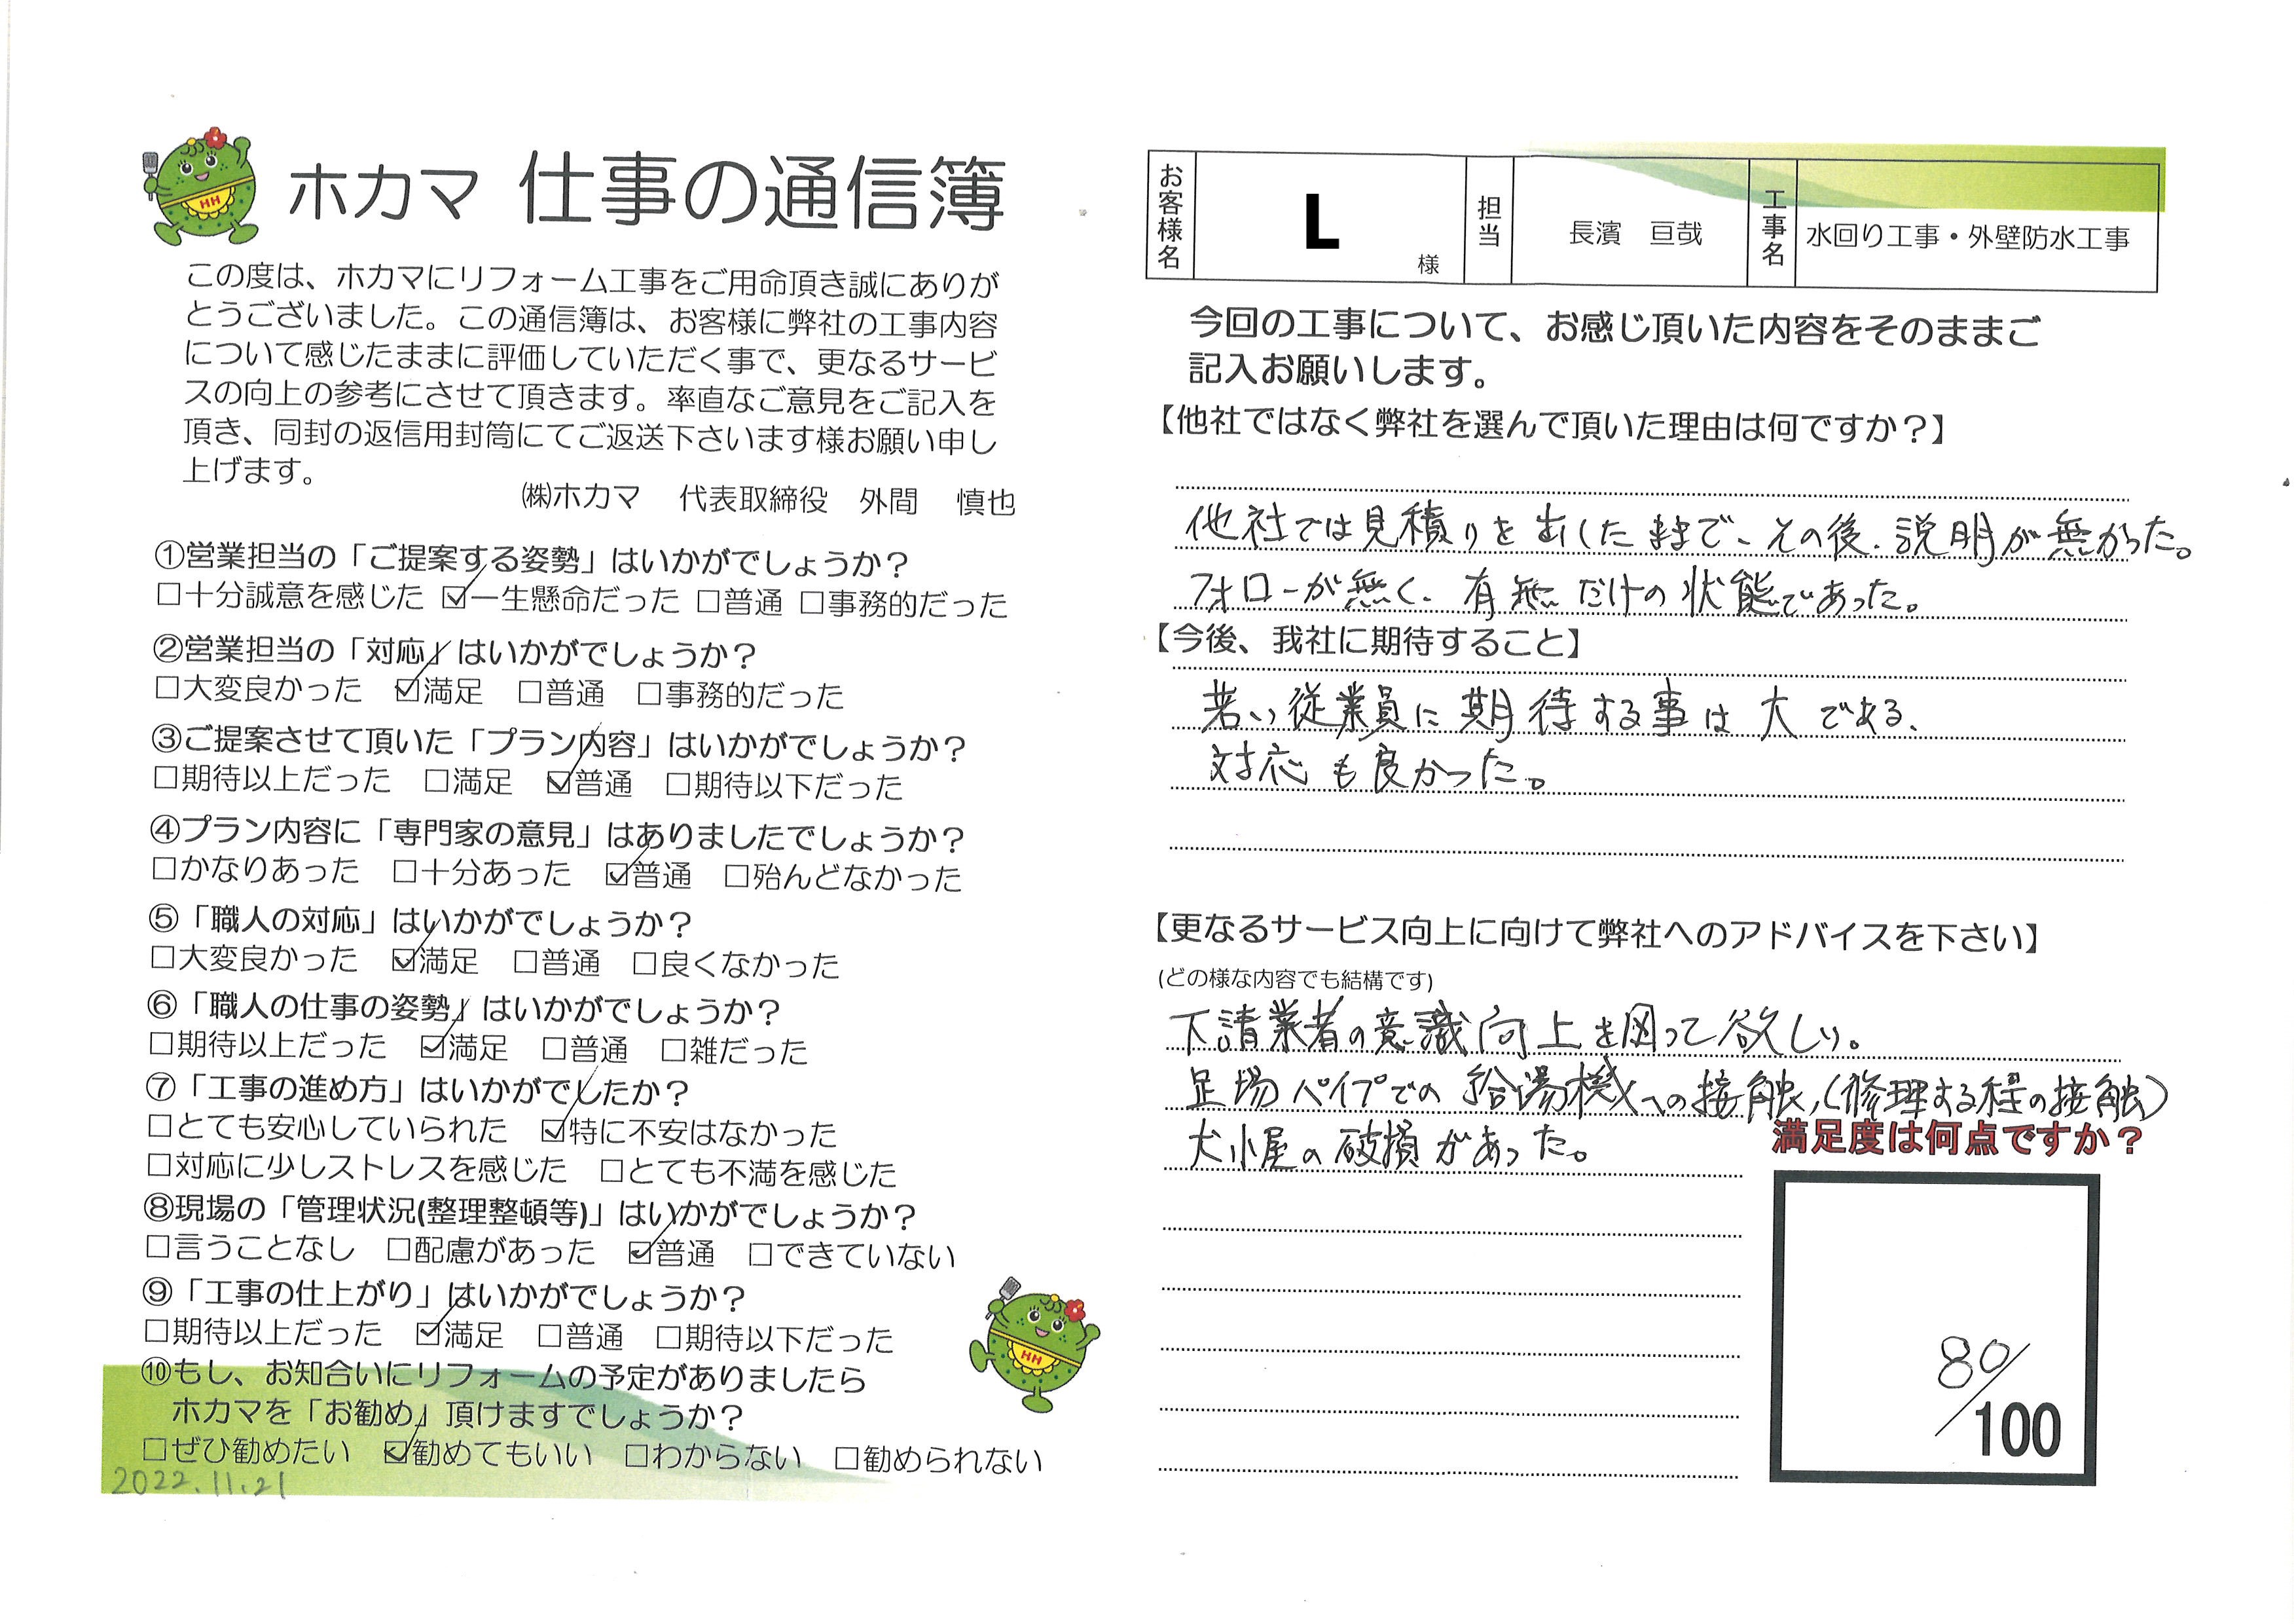 ホカマ 仕事の通信簿
この度は、ホカマにリフォーム工事をご用命頂き誠にありが
とうございました。この通信簿は、お客様に弊社の工事内容
について感じたままに評価していただく事で、更なるサービ
スの向上の参考にさせて頂きます。率直なご意見をご記入を
頂き、同封の返信用封筒にてご返送下さいます様お願い申し
上げます。
㈱ホカマ 代表取締役 外間 慎也
①営業担当の「ご提案する姿勢」はいかがでしょうか？
□十分誠意を感じた ☑一生懸命だった □普通 □事務的だった
②営業担当の「対応」はいかがでしょうか？
□大変良かった ☑満足 □普通 □事務的だった
③ご提案させて頂いた「プラン内容」はいかがでしょうか？
□期待以上だった □満足 ☑普通 □期待以下だった
④プラン内容に「専門家の意見」はありましたでしょうか？
□かなりあった □十分あった ☑普通 □殆んどなかった
⑤「職人の対応」はいかがでしょうか？
□大変良かった ☑満足 □普通 □良くなかった
⑥「職人の仕事の姿勢」はいかがでしょうか？
□期待以上だった ☑満足 □普通 □雑だった
⑦「工事の進め方」はいかがでしたか？
□とても安心していられた ☑特に不安はなかった
□対応に少しストレスを感じた □とても不満を感じた
⑧現場の「管理状況(整理整頓等)」はいかがでしょうか？
□言うことなし □配慮があった ☑普通 □できていない
⑨「工事の仕上がり」はいかがでしょうか？
□期待以上だった ☑満足 □普通 □期待以下だった
⑩もし、お知合いにリフォームの予定がありましたら
ホカマを「お勧め」頂けますでしょうか？
□ぜひ勧めたい ☑勧めてもいい □わからない □勧められない
2022.11.21
お客様名 L 様 担当 長濱 亘哉 工事名 水回り工事・外壁防水工事
今回の工事について、お感じ頂いた内容をそのままご
記入お願いします。
【他社ではなく弊社を選んで頂いた理由は何ですか？】
他社では見積りを出したままで、その後、説明が無かった。
フォローが無く、有無だけの状態であった。
【今後、我社に期待すること】
若い従業員に期待する事は大である、
対応も良かった。
【更なるサービス向上に向けて弊社へのアドバイスを下さい】
(どの様な内容でも結構です)
下請業者の意識向上を図って欲しい。
足場パイプでの給湯機への接触,(修理する程の接触)
犬小屋の破損があった。
満足度は何点ですか？
80/100
HH
HH